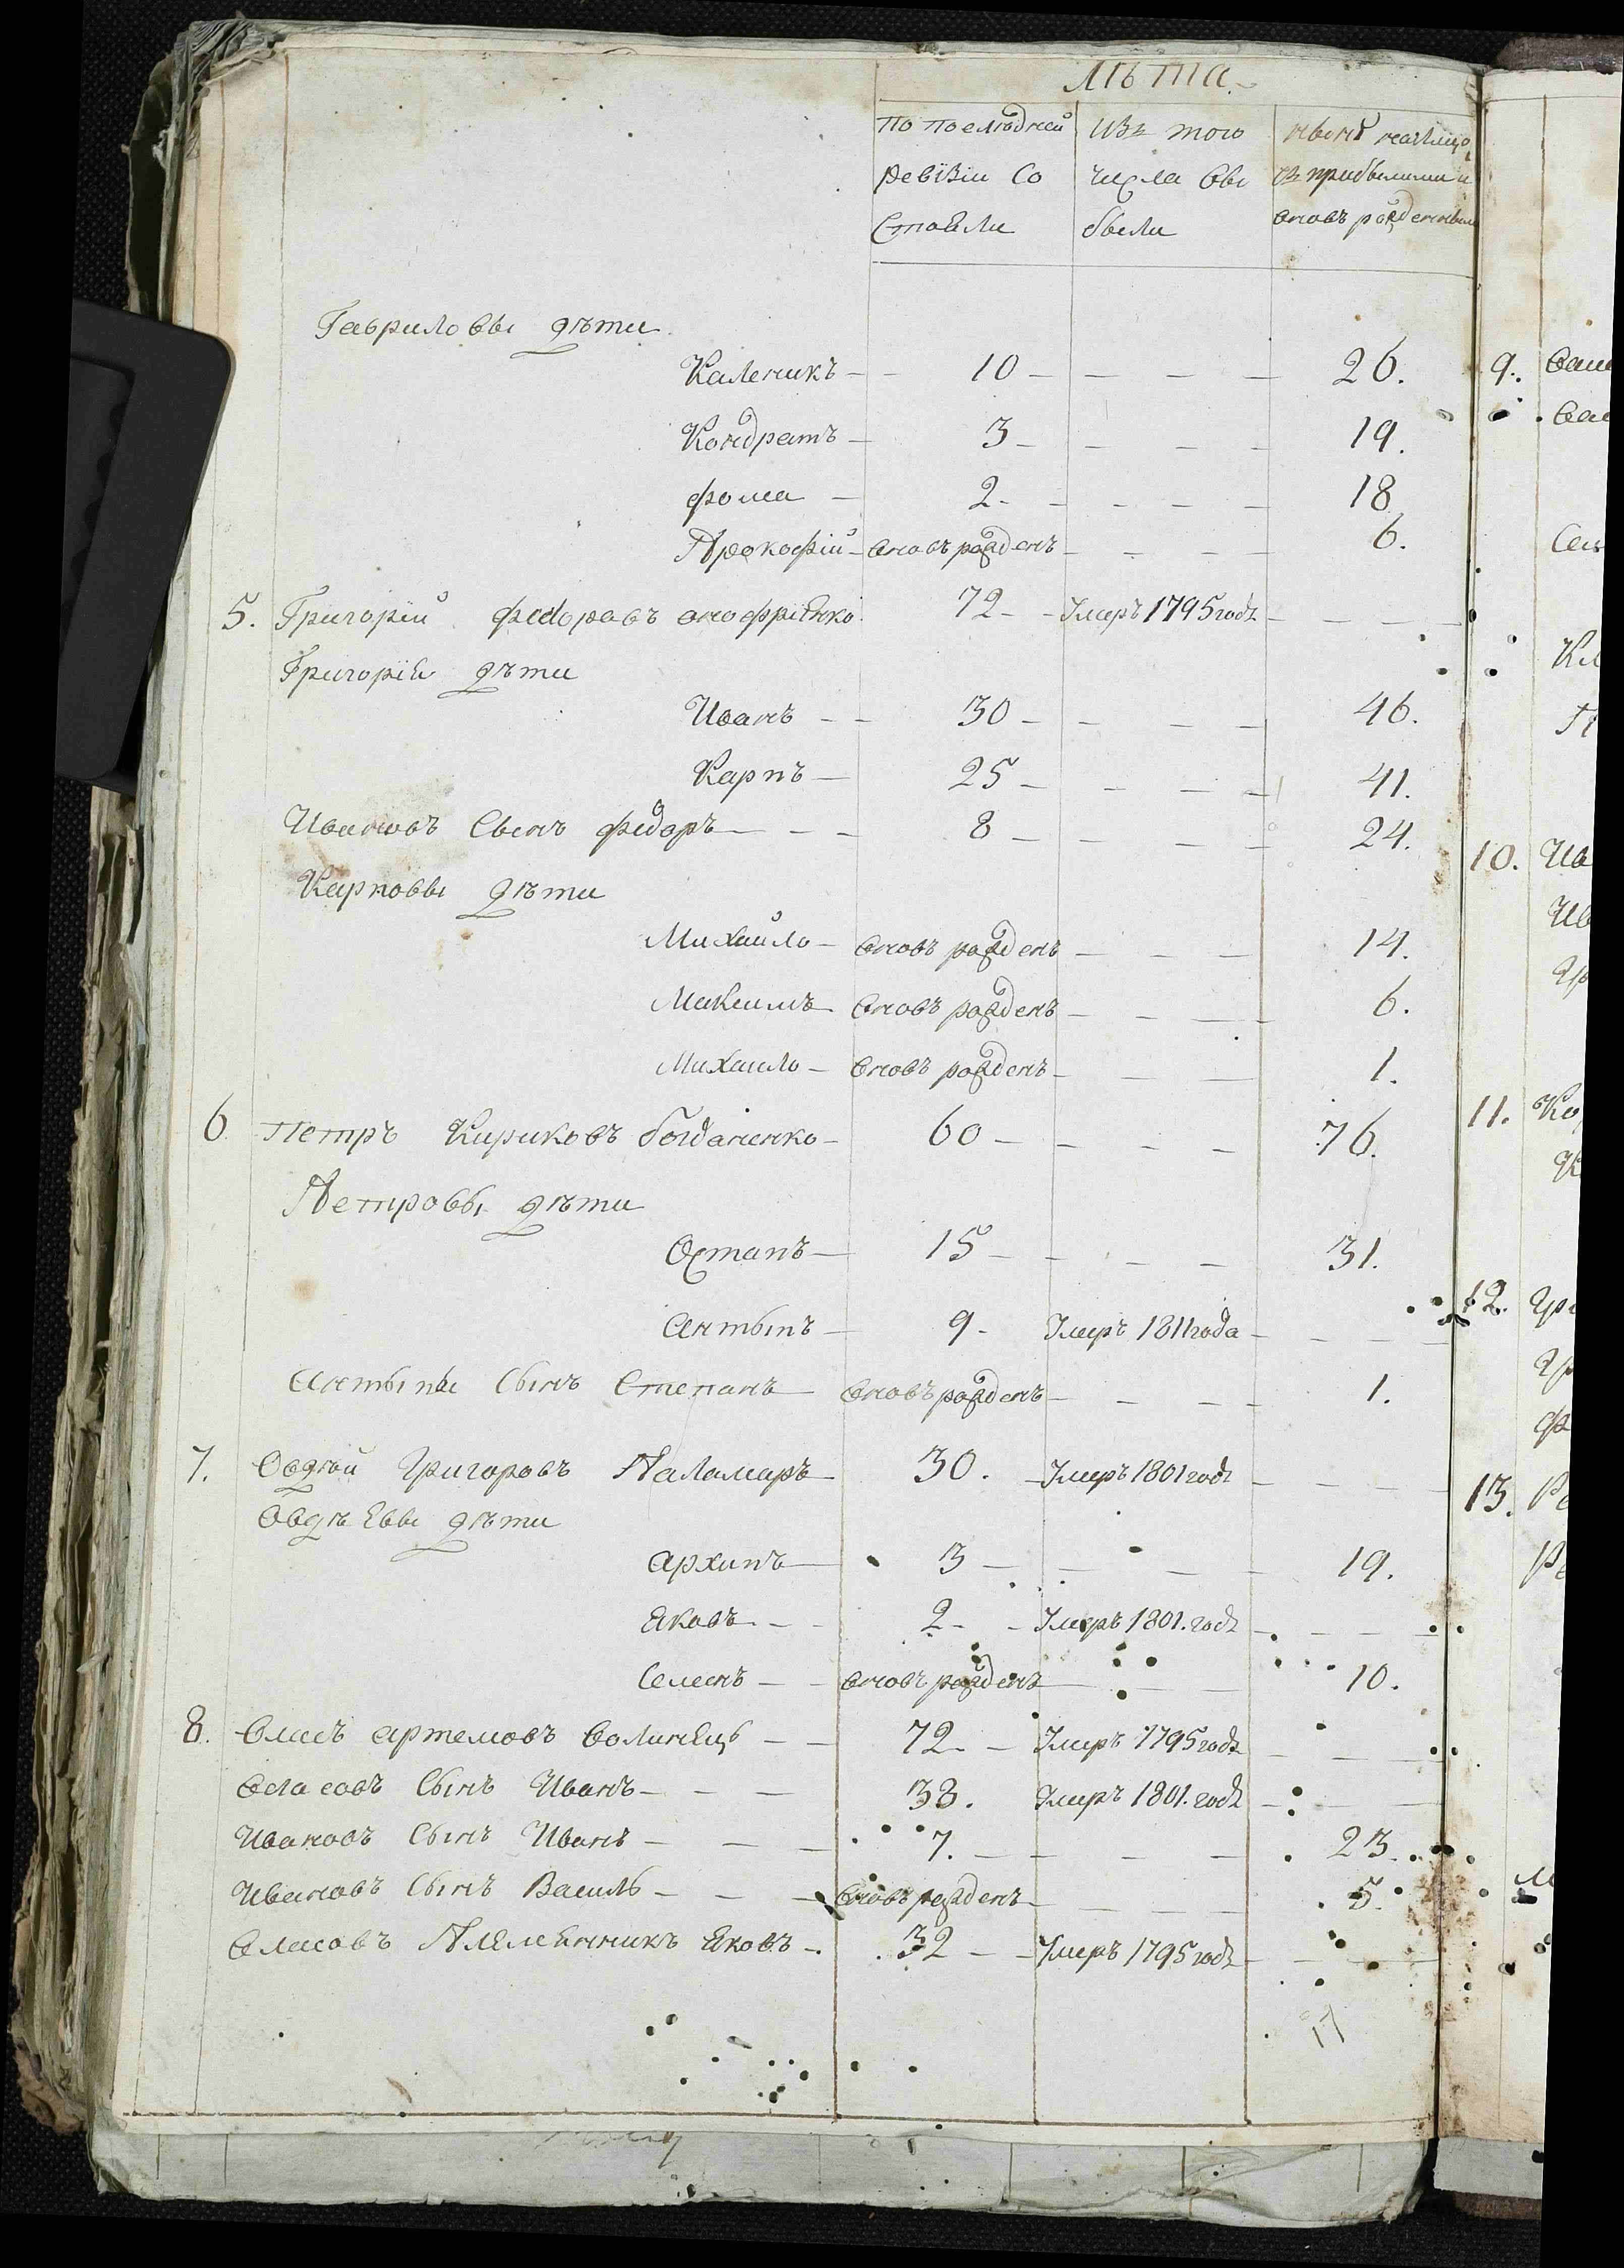 лѣта
по последней
ревизіи со
стояли
изъ того
числа вы
были
нынѣ налицо
съ прибылыми и
вновь рожденными
Гавриловы дѣти
Каленикъ — 10 — 26.
Кондратъ — 3 — 19.
фома — 2 — 18
Прокофій — вновъ рожденъ — 6.
5. Григорій федоровъ онофріенко 72 — Умеръ 1795 годѣ
Григоріи дѣти
Иванъ — 30 — 46.
Карпъ — 25 — 41.
Ивановъ Сынъ федоръ — 8 — 24.
Карповы дѣти
Михайло — вновъ рожденъ — 14.
Максимъ вновъ рожденъ — 6.
Михаило — вновъ рожденъ — 1.
6 Петръ Кириковъ богданенко — 60 — 76.
Петровы дѣти
Остапъ — 15 — 31.
Антыпъ — 9 — Умеръ 1811 года
Антыпы Сынъ Степанъ — вновъ рожденъ — 1.
7. Овдѣй Григоровъ Паламаръ 30. — Умеръ 1801 годѣ
Овдѣевы дѣти
архипъ — 3 — 19.
Яковъ — 2 — Умеръ 1801. годѣ
Семенъ — вновъ рожденъ — 10.
8. Власъ артемовъ волинецъ — 72 — Умеръ 1795 годѣ
Власовъ Сынъ Иванъ — 38. Умеръ 1801. годѣ
Ивановъ Сынъ Иванъ — 7. — 23.
Ивановъ Сынъ Василь — вновъ рожденъ — 5.
Власовъ Племенникъ Яковъ — 32 — Умеръ 1795 годѣ
17
9.
10. Ив
Ив
11.
12.
13.